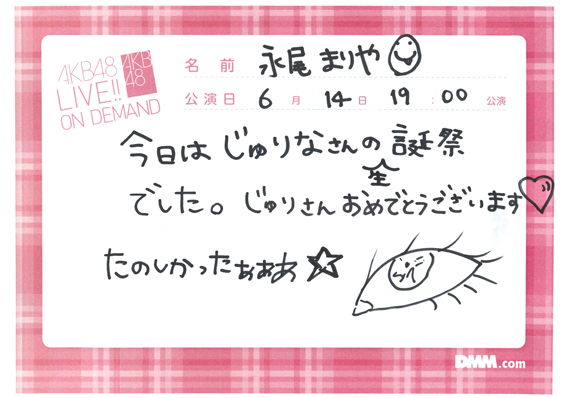 AKB48
LIVE!!
ON DEMAND
AKB
48
名前 永尾まりや
公演日 6月14日19:00公演
今日はじゅりなさんの誕祭
生
でした。じゅりさんおめでとうございます
たのしかったぁぁあ☆
DMM.com